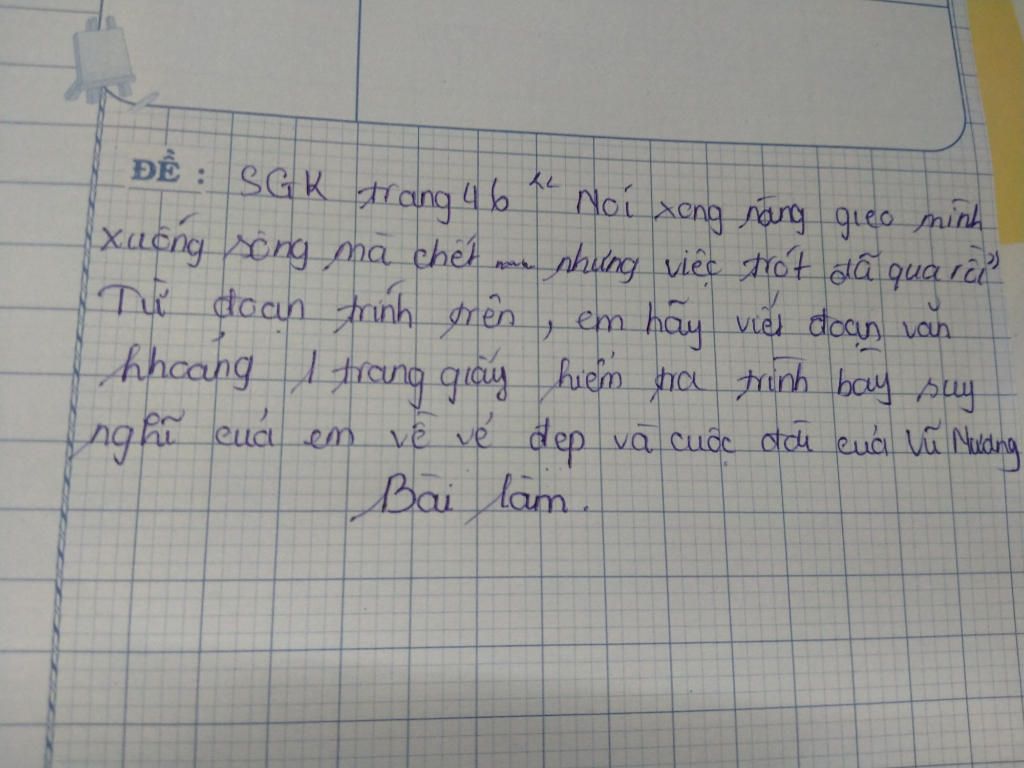 ĐỀ: SGK trang 46 “Nói xong nàng gieo mình
xuống sông mà chết ... nhưng việc trót đã qua rồi”
Từ đoạn trính trên, em hãy viết đoạn văn
khoảng 1 trang giấy kiểm tra trình bày suy
nghĩ của em về vẻ đẹp và cuộc đời của Vũ Nương
Bài làm.